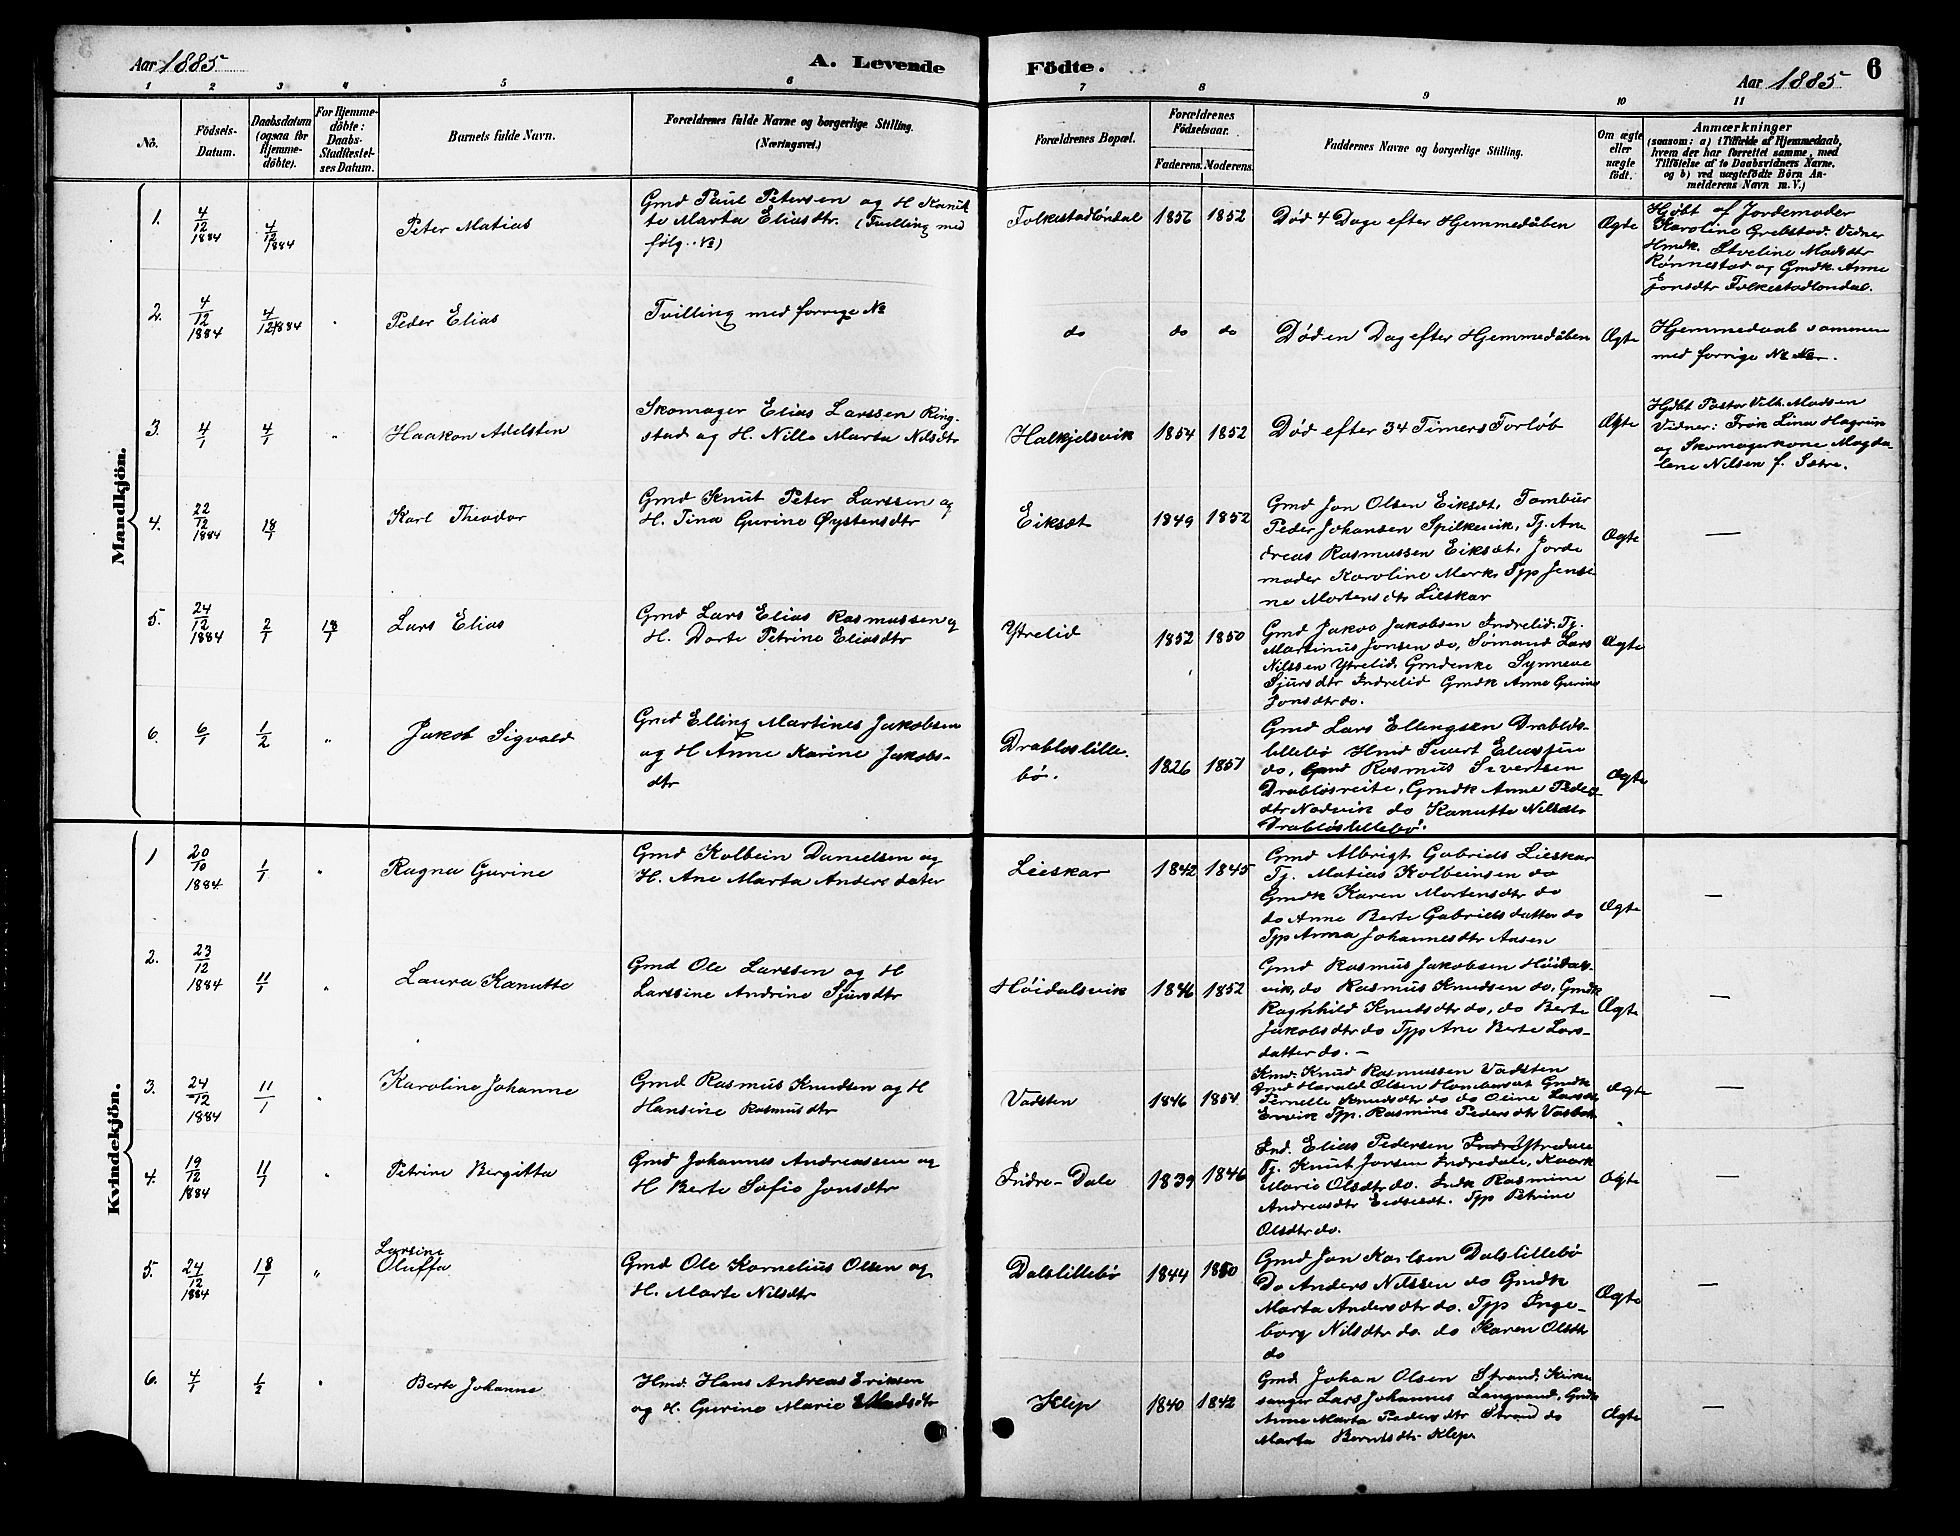 Aar 1885 A. Levende Födte. Aar 1885 6
1 2 3 4 5 6 7 8 9 10 11
No. Födsels-Datum. Daabsdatum (ogsaa for Hjemme-döbte). For Hjemme-döbte: Daabs-Stadfæstel-ses Datum. Barnets fulde Navn. Forældrenes fulde Navne og borgerlige Stilling. (Næringsvei.) Forældrenes Bopæl. Forældrenes Födselsaar. Faderens. Moderens. Faddernes Navne og borgerlige Stilling. Om ægte eller uægte födt. Anmærkninger (saasom: a) i Tilfælde af Hjemmedaab, hvem der har forrettet samme, med Tilföielse af to Daabsvidners Navne. og b) ved uægtefödte Börn An-melderens Navn m. V.)
Mandkjön.
1. 4/12 1884 4/12 1884 Peter Matias
Gmd Paul Petersen og H Kanut
te Marta Eliasdtr. (Tvilling med
følg. No)
Folkestadlöndal 1856 1852 Död 4 Dage efter Hjemmedåben Ægte
Hjdbt af Jordemoder
Karoline Grebstad. Vidner
Hmdk. Steline Madsdtr
Rönnestad og Gmdk. Anne
Jonsdtr Folkestadlöndal.
2. 4/12 1884 4/12 1884 " Peder Elias
Tvilling med forrige No
do do do Död en Dag efter Hjemmedåben Ægte
Hjemmedaab sammen
med forrige No
3. 4/1 4/1 " Haakon Adelsten
Skomager Elias Larssen Ring-
stad og H. Nille Marta Nilsdtr
Halkjelsvik 1854 1852 Död efter 34 Timers Forløb Ægte
Hjdbt Pastor Vilh. Madsen
Vidner: Frök Lina Hagrup
og Skomagerkone Magda-
lene Nilsen f. Sætre.
4. 22/12 1884 18/1 Karl Theodor
Gmd Knut Peter Larssen og
H. Tina Gurine Øystensdtr
Eiksæt 1849 1852
Gmd Jon Olsen Eiksæt, Tambur
Peder Johansen Spilkevik, Tj. An
dreas Rasmussen Eiksæt, Jorde
moder Karoline Mork, Tjp Jensi-
ne Mortensdtr Lieskar
Ægte —
5. 24/12 1884 2/1 18/1 Lars Elias
Gmd Lars Elias Rasmussen og
H. Dorte Petrine Eliasdtr
Ytrelid 1852 1850
Gmd Jakob Jakobsen Indrelid. Tj.
Martinus Jonsen do, Sömand Lars
Nilssen Ytrelid, Gmdenke Synneve
Sjursdtr Indrelid Gmdk Anne Gurine
Jonsdtr do.
Ægte
6. 6/1 1/2 " Jakob Sigvald
Gmd Elling Martines Jakobsen
og H Anne Karine Jakobs-
dtr
Drabløslille-
bö. 1826 1851
Gmd Lars Ellingsen Drabløs-
lillebø Hmd Sivert Eliassen
do, Gmd Rasmus Sivertsen
Drabløsreite, Gmdk Anne Peders-
dtr Nodevik do Kanutte Nilsdtr
Drabløslillebø.
Ægte
Kvindekjön.
1 20/10 1884 1/1 " Ragna Gurine
Gmd Kolbein Danielsen og
H. Ane Marta Anders dater
Lieskar 1842 1845
Gmd Albrigt Gabriels Lieskar
Tj. Matias Kolbeinsen do
Gmdk Karen Mortensdtr do
do Anne Berte Gabrielsdatter do
Tjp Anna Johannesdtr Aasen
Ægte —
2. 23/12 1884 11/1 " Laura Kanutte
Gmd Ole Larssen og H
Larssine Andrine Sjursdtr
Höidalsvik 1846 1852
Gmd Rasmus Jakobsen Höidals-
vik, do Rasmus Knudsen do, Gmdk
Raghhild Knudsdtr do, do Berte
Jakobsdtr do Tjp Ane Berte Lars-
datter do. —
Ægte —
3. 24/12 1884 11/1 " Karoline Johanne
Gmd Rasmus Knudsen og H
Hansine Rasmusdtr
Vadsten 1846 1854
Kmd. Knud Rasmussen Vadsten
Gmd Harald Olsen Homberset Gmdk
Pernelle Knudsdtr do do Oline Larsdtr
Ervik Tjp. Rasmine Pedersdtr Vasbak
Ægte —
4. 19/12 1884 11/1 " Petrine Bergitta
Gmd Johannes Andreassen og
H Berte Sofie Jonsdtr
Indre-Dale 1839 1846
Ind. Elias Pedersen Indre Ytredale
Tj. Knut Jonsen Indredale, Kaark
Marie Olsdtr do. Indk Rasmine
Andreasdtr Eidsedt. Tjp Petrine
Olsdtr do.
Ægte —
5. 24/12 1884 18/1 " Larsine
Oluffa
Gmd Ole Kornelius Olsen og
H. Marte Nilsdtr
Dalslillebø 1844 1850
Gmd Jon Karlsen Dalslillebø
Do Anders Nilssen do Gmdk
Marta Andersdtr do. Tjp Inge-
borg Nilsdtr do. do Karen Olsdtr
do
Ægte —
6. 4/1 1/2 " Berte Johanne
Hmd. Hans Andreas Eriksen
og H. Gurine Marie Madsdtr
Klep 1840 1842
Gmd. Johan Olsen Strand, Kirke
sanger Lars Johannes Langvand, Gmdk
Anne Marta Pedersdtr Strand do
Marta Berntsdtr Klep.
Ægte —